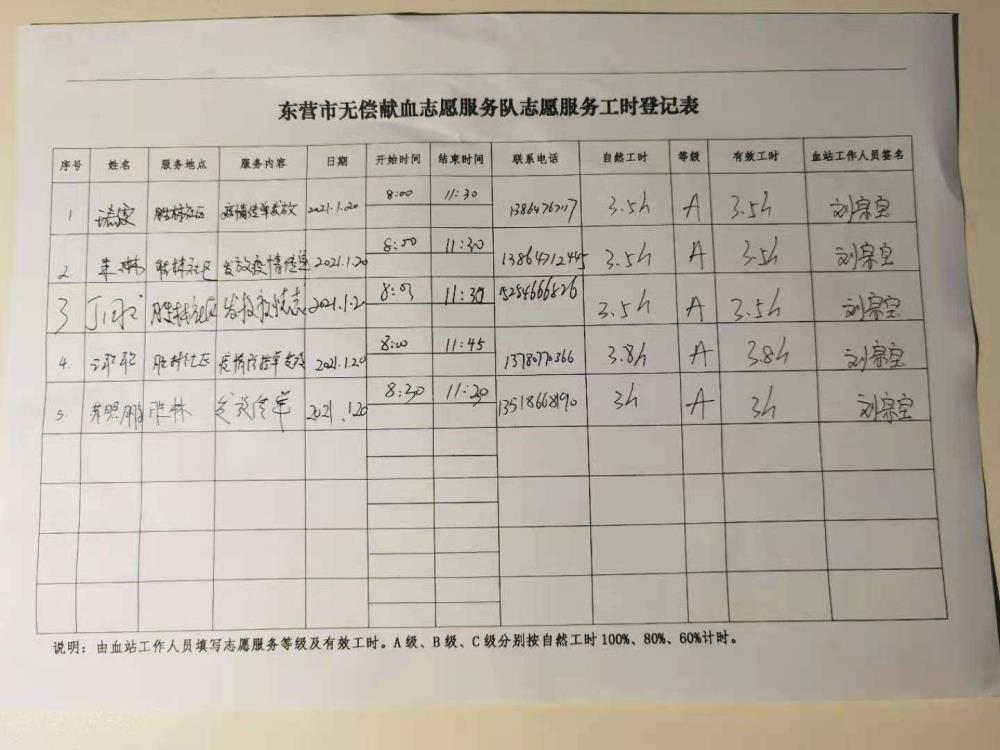 东营市无偿献血志愿服务队志愿服务工时登记表
序号 姓名 服务地点 服务内容 日期 开始时间 结束时间 联系电话 自然工时 等级 有效工时 血站工作人员签名
1 胜林社区 疫情传单发放 2021.1.20 8:00 11:30 3.5h A 3.5h 刘宗宝
2. 胜林社区 发放疫情传单 2021.1.20 8:00 11:30 13864712445 3.5h A 3.5h 刘宗宝
3 胜林社区 2021.1.20 11:30 15254666826 3.5h A 3.5h 刘宗宝
4. 胜林社区 2021.1.20 8:00 11:45 13780770366 3.8h A 3.8h 刘宗宝
5. 胜林 2021.1.20 8:30 11:30 13518668190 3h A 3h 刘宗宝
说明：由血站工作人员填写志愿服务等级及有效工时。A级、B级、C级分别按自然工时100%、80%、60%计时。